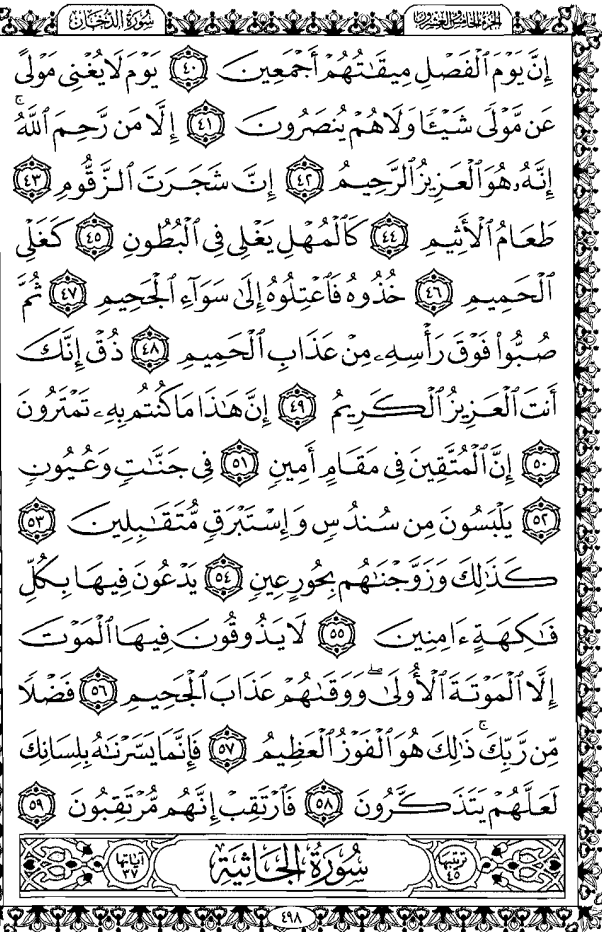 الجزء الخامس والعشرون
سُورَةُ الدُّخَانِ
إِنَّ يَوْمَ ٱلْفَصْلِ مِيقَـٰتُهُمْ أَجْمَعِينَ ٤٠ يَوْمَ لَا يُغْنِى مَوْلًى
عَن مَّوْلًى شَيْـًٔا وَلَا هُمْ يُنصَرُونَ ٤١ إِلَّا مَن رَّحِمَ ٱللَّهُ ۚ
إِنَّهُۥ هُوَ ٱلْعَزِيزُ ٱلرَّحِيمُ ٤٢ إِنَّ شَجَرَتَ ٱلزَّقُّومِ ٤٣
طَعَامُ ٱلْأَثِيمِ ٤٤ كَٱلْمُهْلِ يَغْلِى فِى ٱلْبُطُونِ ٤٥ كَغَلْىِ
ٱلْحَمِيمِ ٤٦ خُذُوهُ فَٱعْتِلُوهُ إِلَىٰ سَوَآءِ ٱلْجَحِيمِ ٤٧ ثُمَّ
صُبُّوا۟ فَوْقَ رَأْسِهِۦ مِنْ عَذَابِ ٱلْحَمِيمِ ٤٨ ذُقْ إِنَّكَ
أَنتَ ٱلْعَزِيزُ ٱلْكَرِيمُ ٤٩ إِنَّ هَـٰذَا مَا كُنتُم بِهِۦ تَمْتَرُونَ
٥٠ إِنَّ ٱلْمُتَّقِينَ فِى مَقَامٍ أَمِينٍ ٥١ فِى جَنَّـٰتٍ وَعُيُونٍ
٥٢ يَلْبَسُونَ مِن سُندُسٍ وَإِسْتَبْرَقٍ مُّتَقَـٰبِلِينَ ٥٣
كَذَٰلِكَ وَزَوَّجْنَـٰهُم بِحُورٍ عِينٍ ٥٤ يَدْعُونَ فِيهَا بِكُلِّ
فَـٰكِهَةٍ ءَامِنِينَ ٥٥ لَا يَذُوقُونَ فِيهَا ٱلْمَوْتَ
إِلَّا ٱلْمَوْتَةَ ٱلْأُولَىٰ ۖ وَوَقَىٰهُمْ عَذَابَ ٱلْجَحِيمِ ٥٦ فَضْلًا
مِّن رَّبِّكَ ۚ ذَٰلِكَ هُوَ ٱلْفَوْزُ ٱلْعَظِيمُ ٥٧ فَإِنَّمَا يَسَّرْنَـٰهُ بِلِسَانِكَ
لَعَلَّهُمْ يَتَذَكَّرُونَ ٥٨ فَٱرْتَقِبْ إِنَّهُم مُّرْتَقِبُونَ ٥٩
ترتيبها ٤٥ سُورَةُ الجَاثِيَةِ آياتها ٣٧
٤٩٨